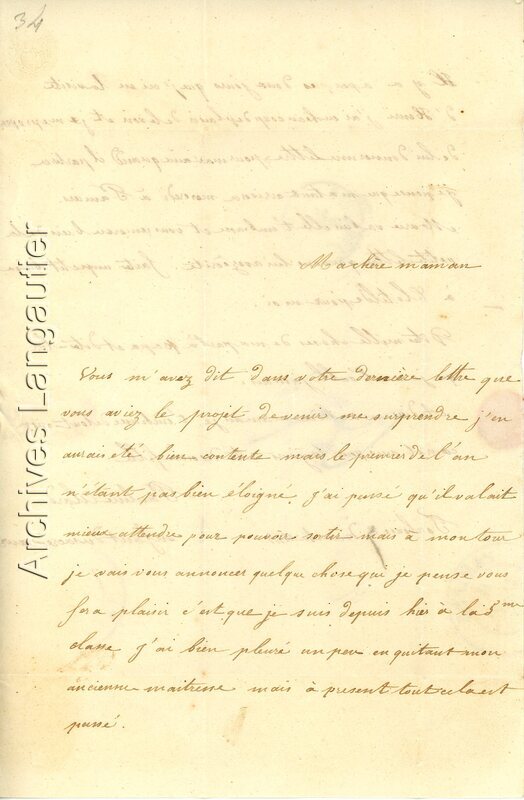 34
Archives Langautier
Ma chère maman
Vous m'avez dit dans votre dernière lettre que
vous aviez le projet de venir me surprendre j'en
aurais été bien contente mais le premier de l'an
n'étant pas bien éloigné j'ai pensé qu'il valait
mieux attendre pour pouvoir sortir mais à mon tour
je vais vous annoncer quelque chose qui je pense vous
fera plaisir c'est que je suis depuis hier à la 5me
classe j'ai bien pleuré un peu en quitant mon
ancienne maitresse mais à present tout cela est
passé.